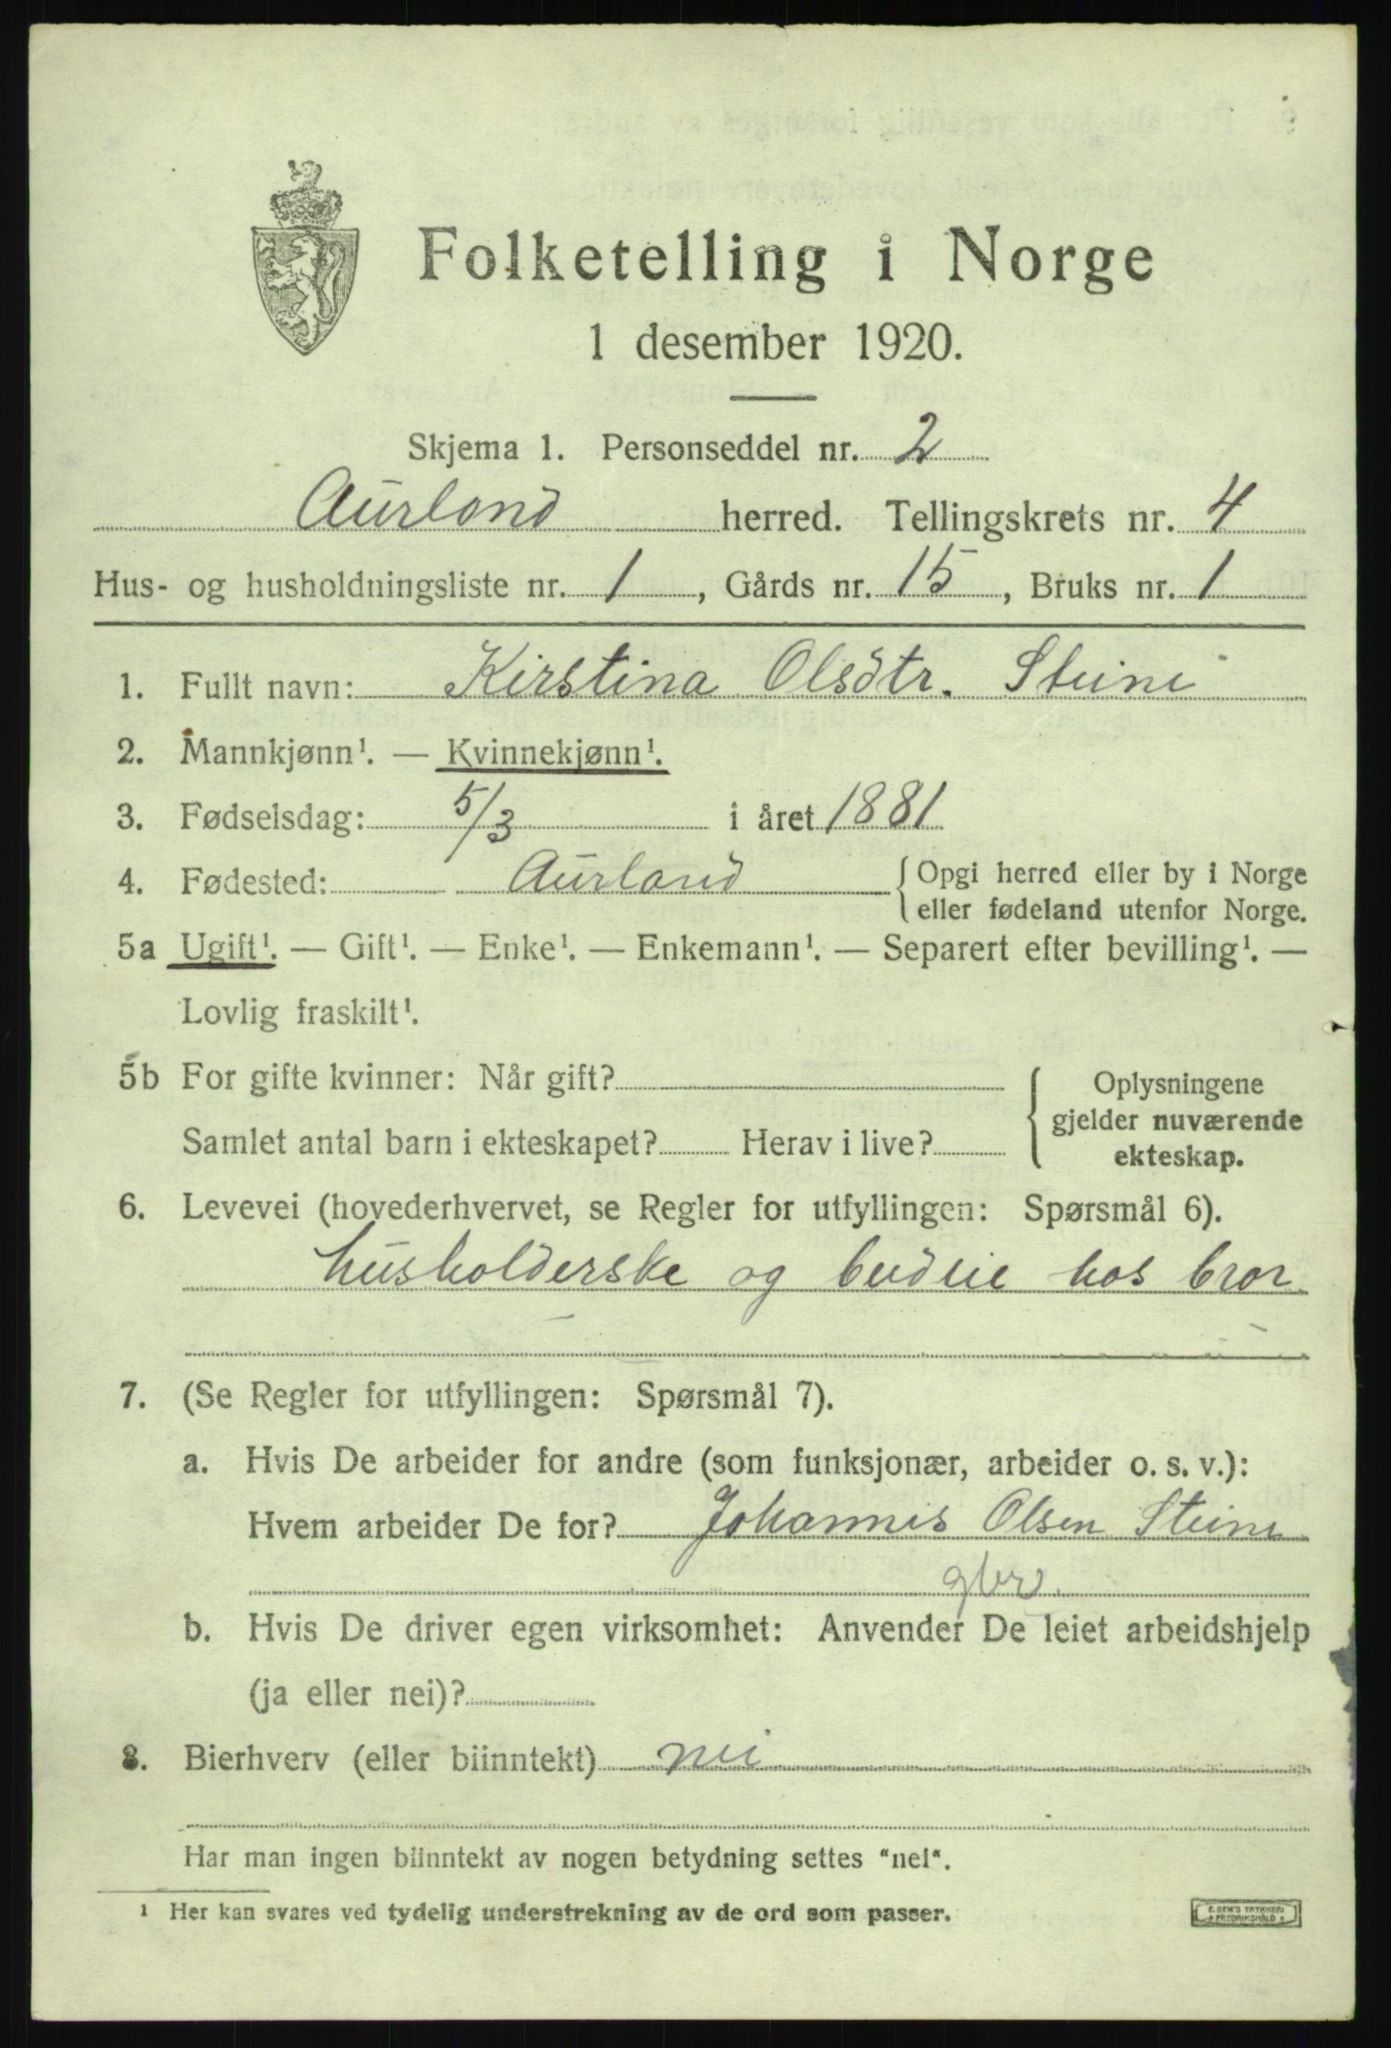 Folketelling i Norge
1 desember 1920.
Skjema 1. Personseddel nr. 2
Aurland herred. Tellingskrets nr. 4
Hus- og husholdningsliste nr. 1, Gårds nr. 15, Bruks nr. 1
1. Fullt navn: Kirstina Olsdtr. Steine
2. Mannkjønn¹. — Kvinnekjønn¹.
3. Fødselsdag: 5/3 i året 1881
4. Fødested: Aurland { Opgi herred eller by i Norge
eller fødeland utenfor Norge.
5a Ugift¹. — Gift¹. — Enke¹. — Enkemann¹. — Separert efter bevilling¹. —
Lovlig fraskilt¹.
5b For gifte kvinner: Når gift?
Samlet antal barn i ekteskapet? Herav i live?
{ Oplysningene
gjelder nuværende
ekteskap.
6. Levevei (hovederhvervet, se Regler for utfyllingen: Spørsmål 6).
husholderske og budeie hos bror
7. (Se Regler for utfyllingen: Spørsmål 7).
a. Hvis De arbeider for andre (som funksjonær, arbeider o. s. v.):
Hvem arbeider De for? Johannes Olsen Steine
gbr.
b. Hvis De driver egen virksomhet: Anvender De leiet arbeidshjelp
(ja eller nei)?
8. Bierhverv (eller biinntekt) nei
Har man ingen biinntekt av nogen betydning settes "nei".
¹ Her kan svares ved tydelig understrekning av de ord som passer.
E. SEM'S TRYKKERI
FREDRIKSHALD